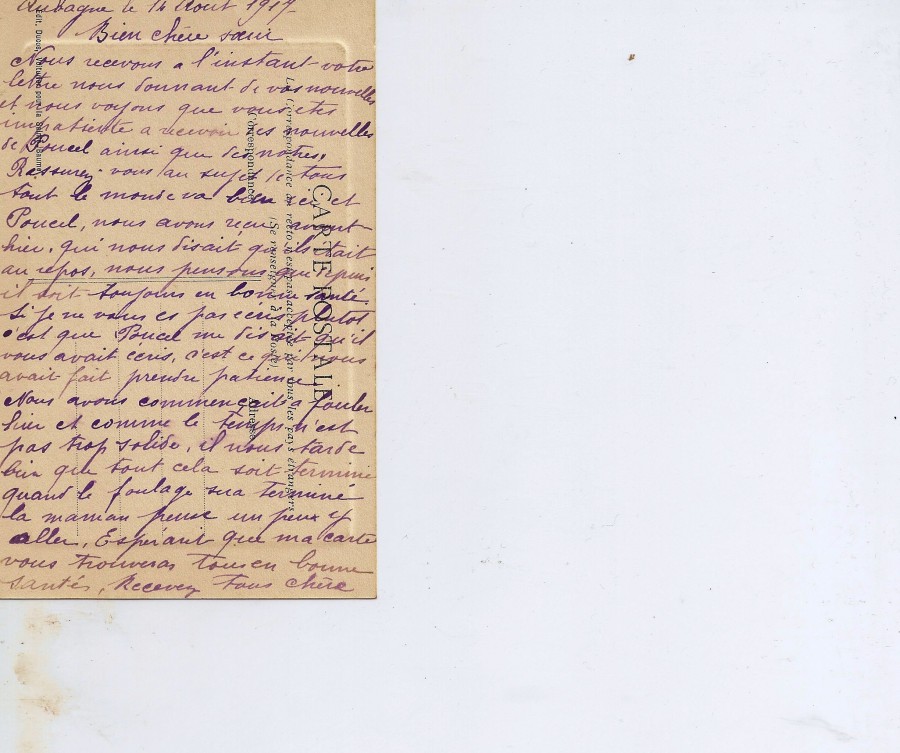 Aubagne le 14 Aout 1917
Bien chère sœur
Nous recevons a l'instant votre
lettre nous donnant de vos nouvelles
et nous voyons que vous etes
impatiente a recevoir des nouvelles
de Poucel ainsi que des notres,
Rassurez-vous au sujet de tous
tout le monde va bien ici et
Poucel, nous avons reçu avant
hier, qui nous disait qu'ils était
au repos, nous pensons que depuis
il soit toujours en bonne santé.
Si je ne vous es pas écris plutot
c'est que Poucel me disait qu'il
vous avait écris, c'est ce qui nous
avait fait prendre patience
Nous avons commencés a fouler
hier et comme le temps n'est
pas trop solide, il nous tarde
bien que tout cela soit terminé
quand le foulage sera terminé
la maman pense un peux y
aller, Espérant que ma carte
vous trouveras tous en bonne
santés, Recevez tous chère
CARTE POSTALE
La Correspondance au recto n'est pas acceptée par tous les pays étrangers
(Se renseigner à la Poste)
Correspondance
Adresse